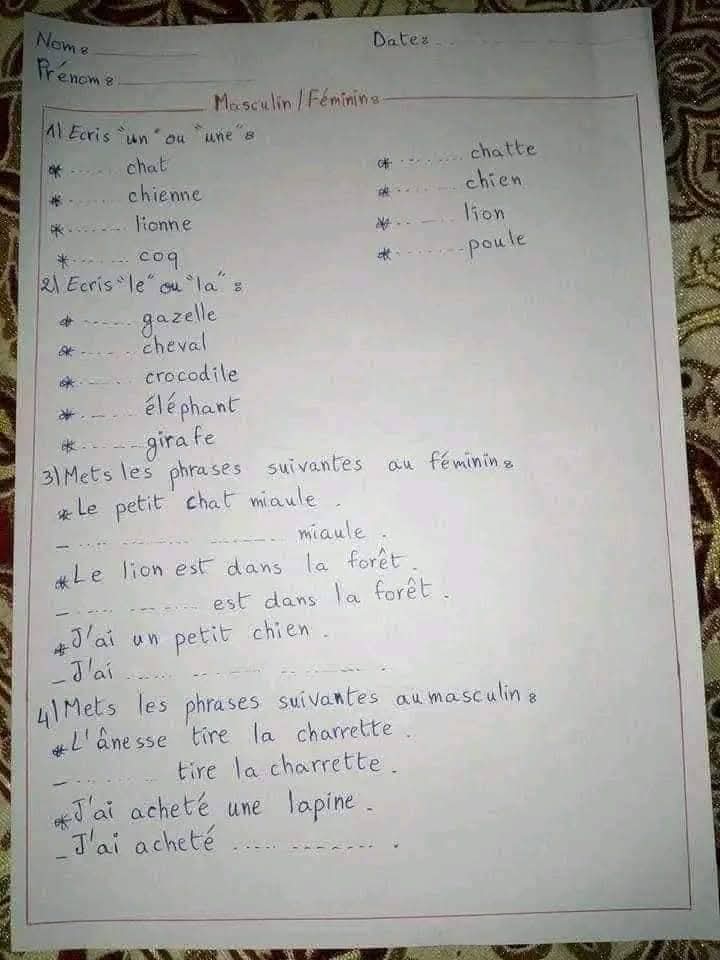 Nom : Date :
Prénom :
Masculin / Féminin :
1) Ecris "un" ou "une" :
* ...... chat * ...... chatte
* ...... chienne * ...... chien
* ...... lionne * ...... lion
* ...... coq * ...... poule
2) Ecris "le" ou "la" :
* ...... gazelle
* ...... cheval
* ...... crocodile
* ...... éléphant
* ...... girafe
3) Mets les phrases suivantes au féminin :
* Le petit chat miaule .
- ...... ...... ...... miaule .
* Le lion est dans la forêt .
- ...... ...... est dans la forêt .
* J'ai un petit chien .
- J'ai ...... ...... ...... .
4) Mets les phrases suivantes au masculin :
* L'ânesse tire la charrette .
- ...... tire la charrette .
* J'ai acheté une lapine .
- J'ai acheté ...... ...... .